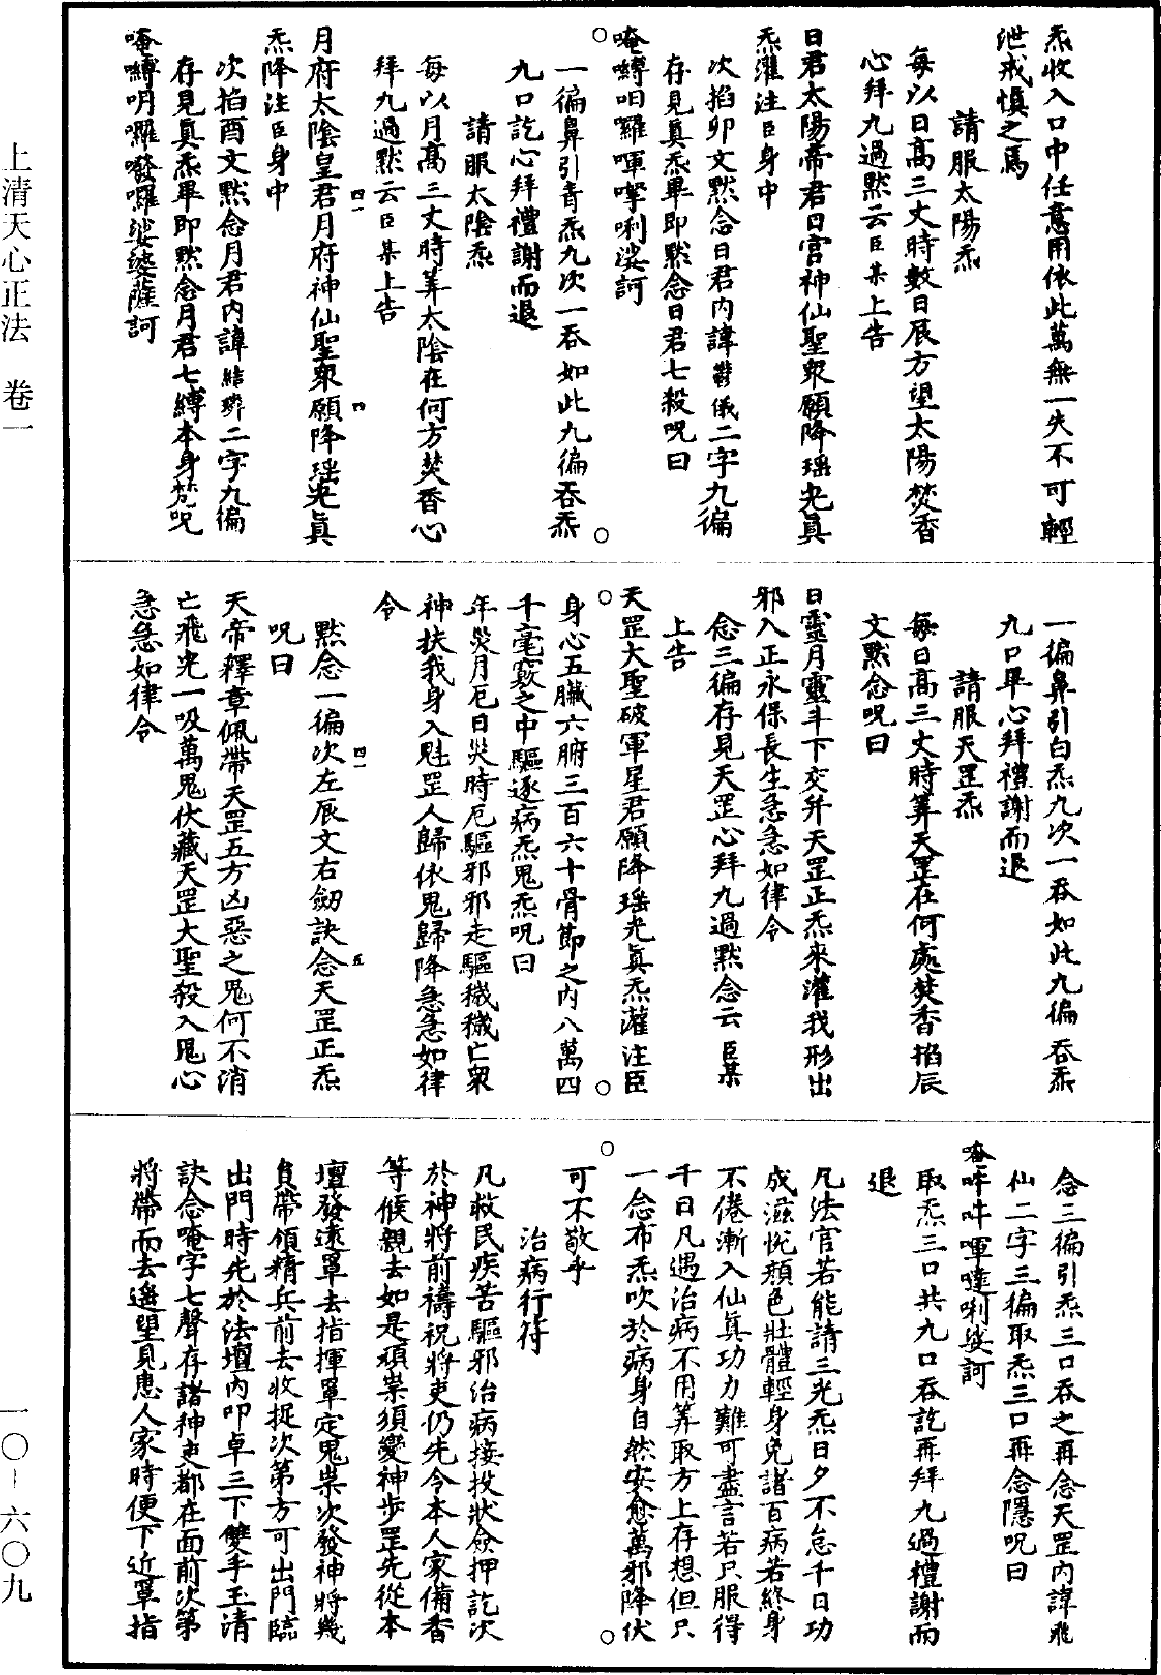 炁收入口中任意用依此萬無一失不可輕
泄戒慎之焉
請服太陽炁
每以日高三丈時數日辰方望太陽焚香
心拜九過黙云臣某上告
日君太陽帝君日宮神仙聖衆願降瑶光真
炁灌注臣身中
次掐卯文黙念日君内諱欝儀二字九徧
存見真炁畢即黙念日君七殺呪曰
唵嚩呬囉㖷㗚唎娑訶
一徧鼻引青炁九次一吞如此九徧吞炁
九口訖心拜禮謝而退
請服太陰炁
每以月高三丈時筭太陰在何方焚香心
拜九過黙云臣某上告
月府太陰皇君月府神仙聖衆願降瑶光真
炁降注臣身中
次掐酉文黙念月君内諱結璘二字九徧
存見真炁畢即黙念月君七縛本身梵呪
唵嚩明囉發囉娑婆薩訶
一徧鼻引白炁九次一吞如此九徧吞炁
九口畢心拜禮謝而退
請服天罡炁
每日高三丈時筭天罡在何處焚香掐辰
文黙念呪曰
日靈月靈斗下交并天罡正炁來灌我形出
邪入正永保長生急急如律令
念三徧存見天罡心拜九過黙念云臣某
上告
天罡大聖破軍星君願降瑶光真炁灌注臣
身心五臟六腑三百六十骨節之内八萬四
千毫竅之中驅逐病炁鬼炁呪曰
年災月厄日災時厄驅邪邪走驅穢穢亡衆
神扶我身入魁罡人歸依鬼歸降急急如律
令
黙念一徧次左辰文右劒訣念天罡正炁
呪曰
天帝釋章佩帶天罡五方凶惡之鬼何不消
亡飛光一吸萬鬼伏藏天罡大聖殺入鬼心
急急如律令
念三徧引炁三口吞之再念天罡内諱飛
仙二字三徧取炁三口再念隱呪曰
唵吽吽㖷噠唎娑訶
取炁三口共九口吞訖再拜九過禮謝而
退
凡法官若能請三光炁日夕不怠千日功
成滋悅顏色壯體輕身免諸百病若終身
不倦漸入仙真功力難可盡言若只服得
千日凡遇治病不用筭取方上存想但只
一念布炁吹於病身自然安愈萬邪降伏
可不敬乎
治病行符
凡救民疾苦驅邪治病接投狀僉押訖次
於神將前禱祝將吏仍先令本人家備香
等候親去如是頑祟須變神步罡先從本
壇發遠罩去指揮罩定鬼祟次發神將幾
員帶領精兵前去收捉次第方可出門臨
出門時先於法壇内叩卓三下雙手玉清
訣念唵字七聲存諸神吏都在面前次第
將帶而去遙望見患人家時便下近罩指
上清天心正法 卷一
一〇－六〇九
四一
四
四一
五